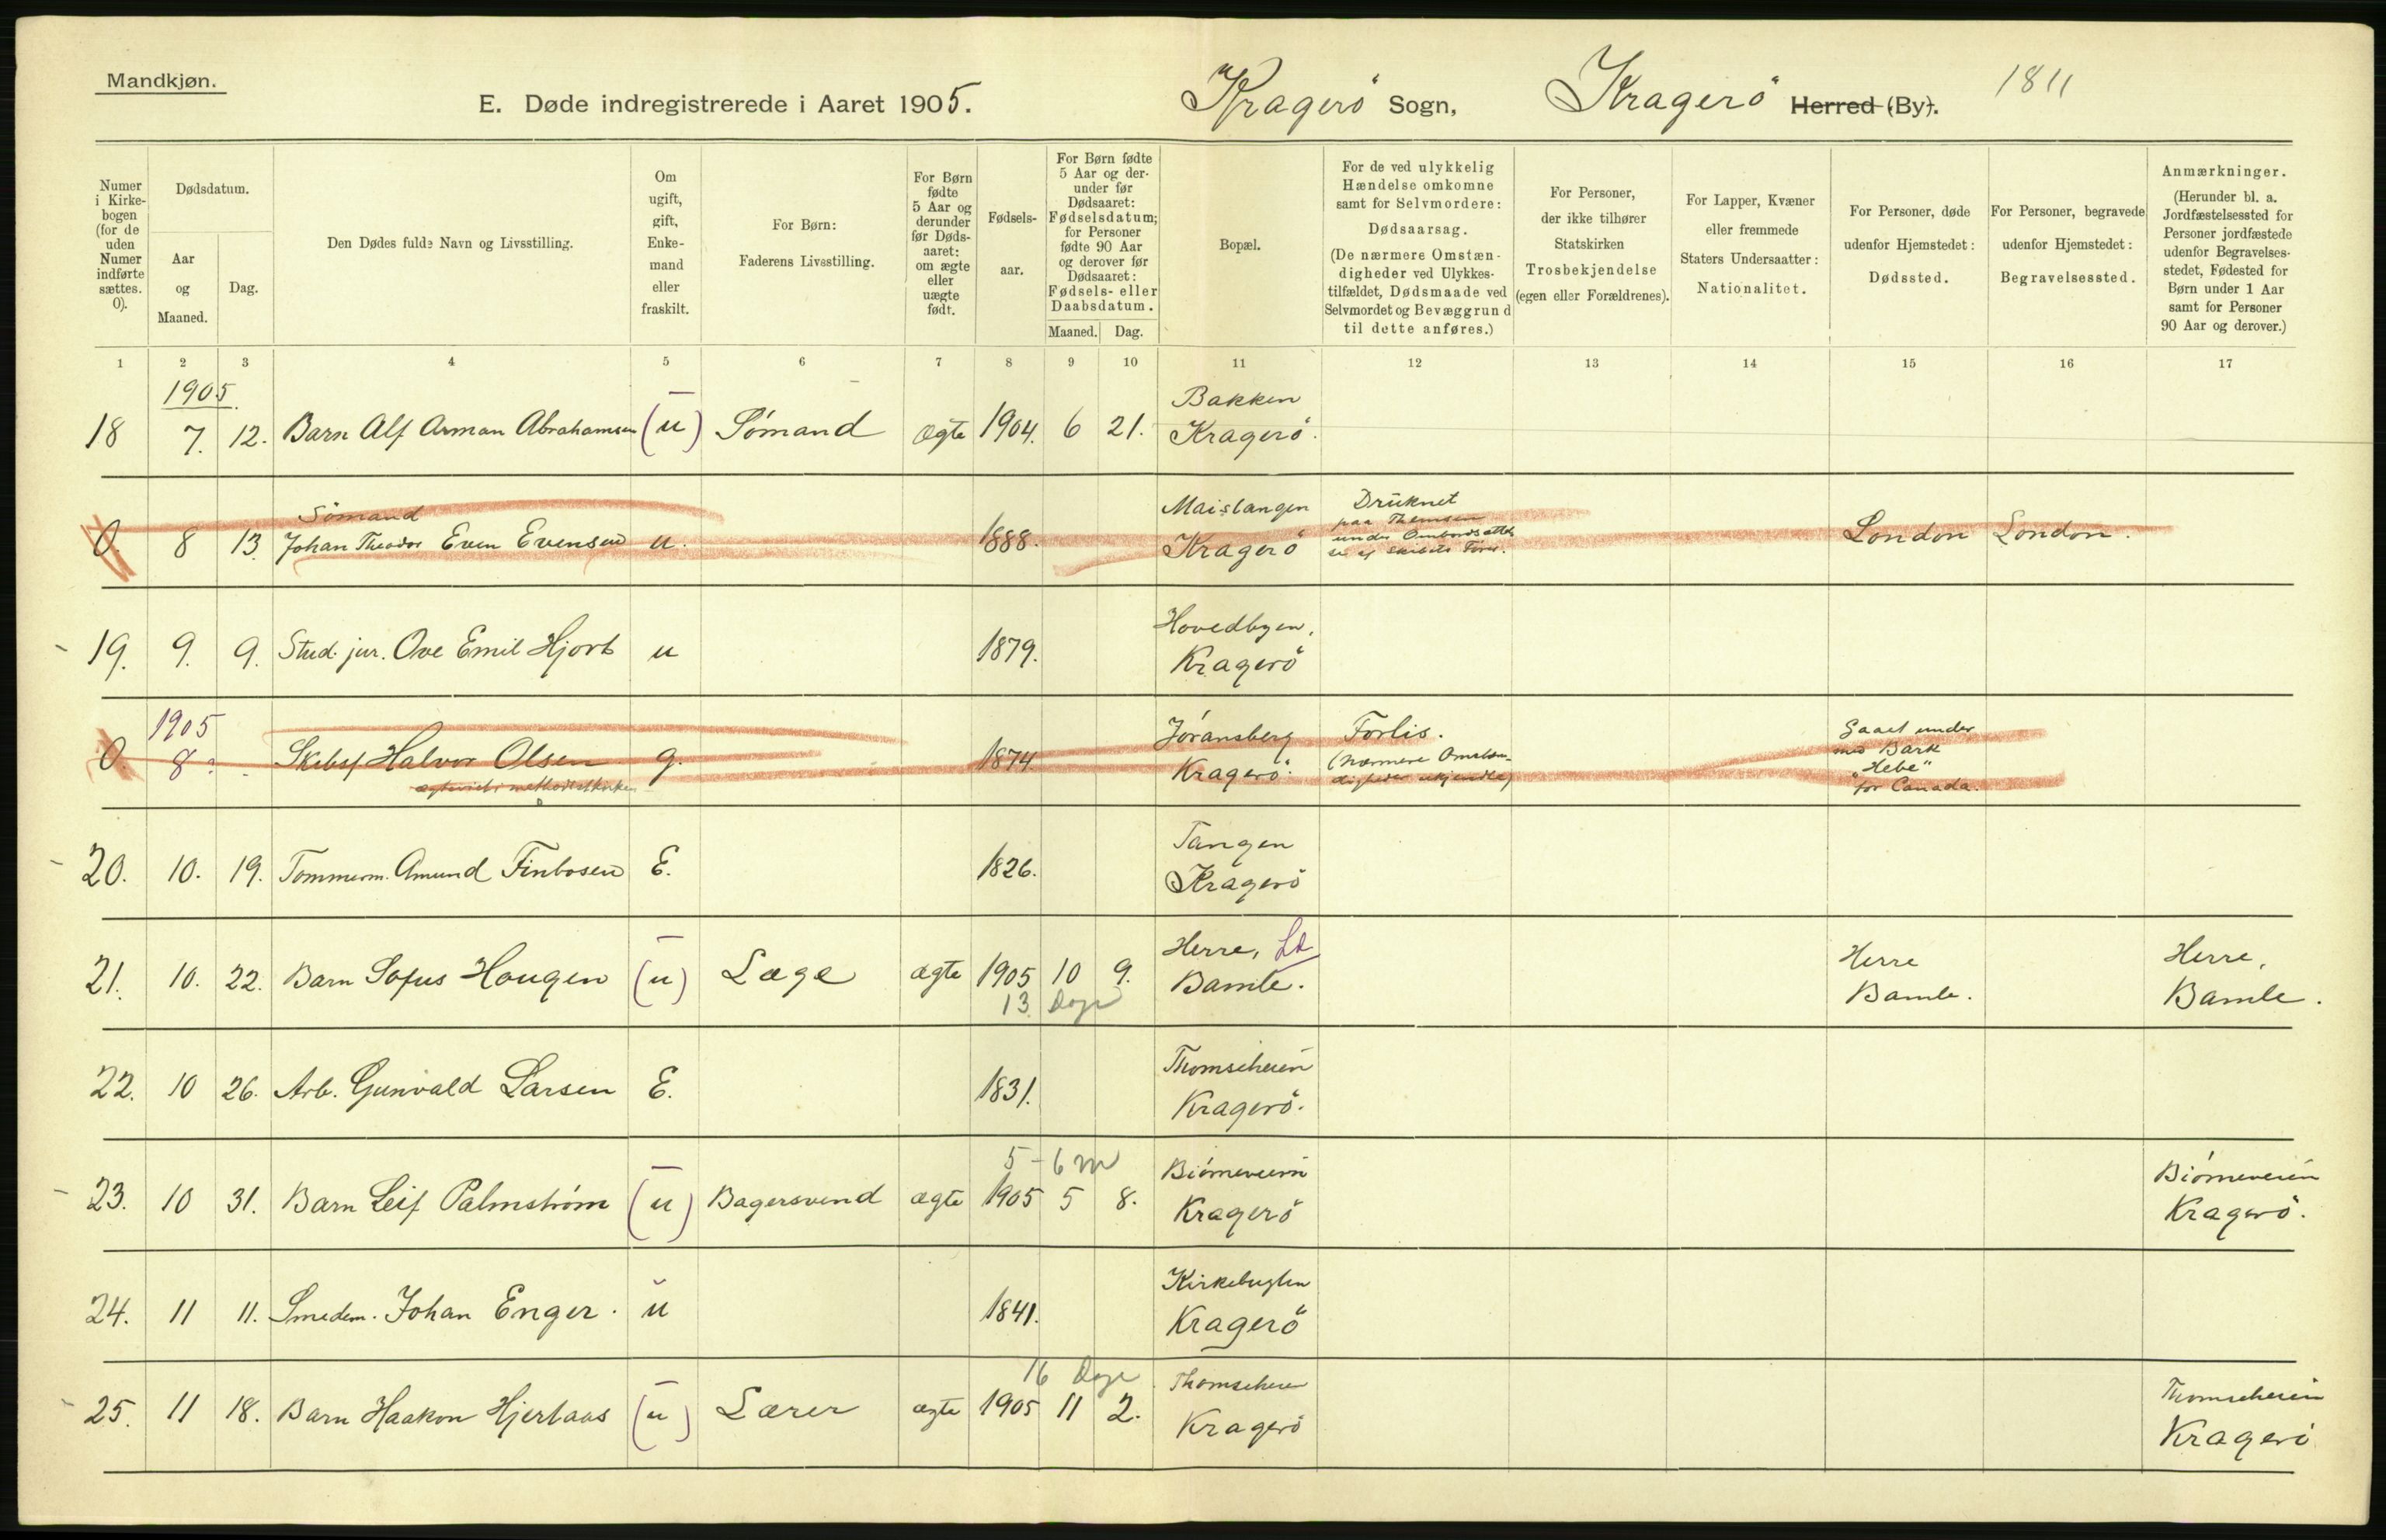 Mandkjøn.
E. Døde indregistrerede i Aaret 1905.
Kragerö Sogn, Kragerö Herred (By).
1811
Numer i Kirke-bogen (for de uden Numer indførte sættes. 0).
Dødsdatum.
Aar og Maaned.
Dag.
Den Dødes fulde Navn og Livsstilling.
Om ugift, gift, Enke-mand eller fraskilt.
For Børn:
Faderens Livsstilling.
For Børn fødte 5 Aar og derunder før Døds-aaret: om ægte eller uægte født.
Fødsels-aar.
For Børn fødte 5 Aar og der-under før Dødsaaret: Fødselsdatum; for Personer fødte 90 Aar og derover før Dødsaaret: Fødsels- eller Daabsdatum.
Maaned. Dag.
Bopæl.
For de ved ulykkelig Hændelse omkomne samt for Selvmordere:
Dødsaarsag.
(De nærmere Omstæn-digheder ved Ulykkes-tilfældet, Dødsmaade ved Selvmordet og Bevæggrund til dette anføres.)
For Personer, der ikke tilhører Statskirken
Trosbekjendelse
(egen eller Forældrenes).
For Lapper, Kvæner eller fremmede Staters Undersaatter:
Nationalitet.
For Personer, døde udenfor Hjemstedet:
Dødssted.
For Personer, begravede udenfor Hjemstedet:
Begravelsessted.
Anmærkninger.
(Herunder bl. a. Jordfæstelsessted for Personer jordfæstede udenfor Begravelses-stedet, Fødested for Børn under 1 Aar samt for Personer 90 Aar og derover.)
1 2 3 4 5 6 7 8 9 10 11 12 13 14 15 16 17
1905
18 7. 12. Barn Alf Arman Abrahamsen (u) Sömand ægte 1904. 6 21. Bakken Kragerö.
0. 8 13. Sömand Johan Theodor Even Evensen u. 1888. Maistangen Kragerö Druknet paa Themsen under Ombordsættelse af Skibets Fører. London London.
19. 9. 9. Stud. jur. Ove Emil Hjort u 1879. Hovedbyen, Kragerö
1905
0. 8? Skibsf Halvor Olsen g. 1874 Jöransberg Kragerö. Forlis. (Nærmere Omstændigheder ukjendte) Gaaet under med Bark "Hebe" for Canada.
20. 10. 19. Tømmerm. Amund Finbosen E. 1826. Tangen Kragerö
21. 10. 22. Barn Sofus Hougen (u) Læge ægte 1905 10 9. Herre, Bamle. Herre Bamle. Herre, Bamle.
13 Dage
22. 10 26. Arb. Gunvald Larsen E. 1831. Thomseheien Kragerö.
5-6 m
23. 10 31. Barn Leif Palmström (u) Bagersvend ægte 1905 5 8. Biörneveien Kragerö Biörneveien Kragerö.
24. 11 11. Smedem. Johan Enger. u 1841. Kirkebugten Kragerö
16 Dage
25. 11 18. Barn Haakon Hjertaas (u) Lærer ægte 1905 11 2. Thomseheien Kragerö Thomseheien Kragerö